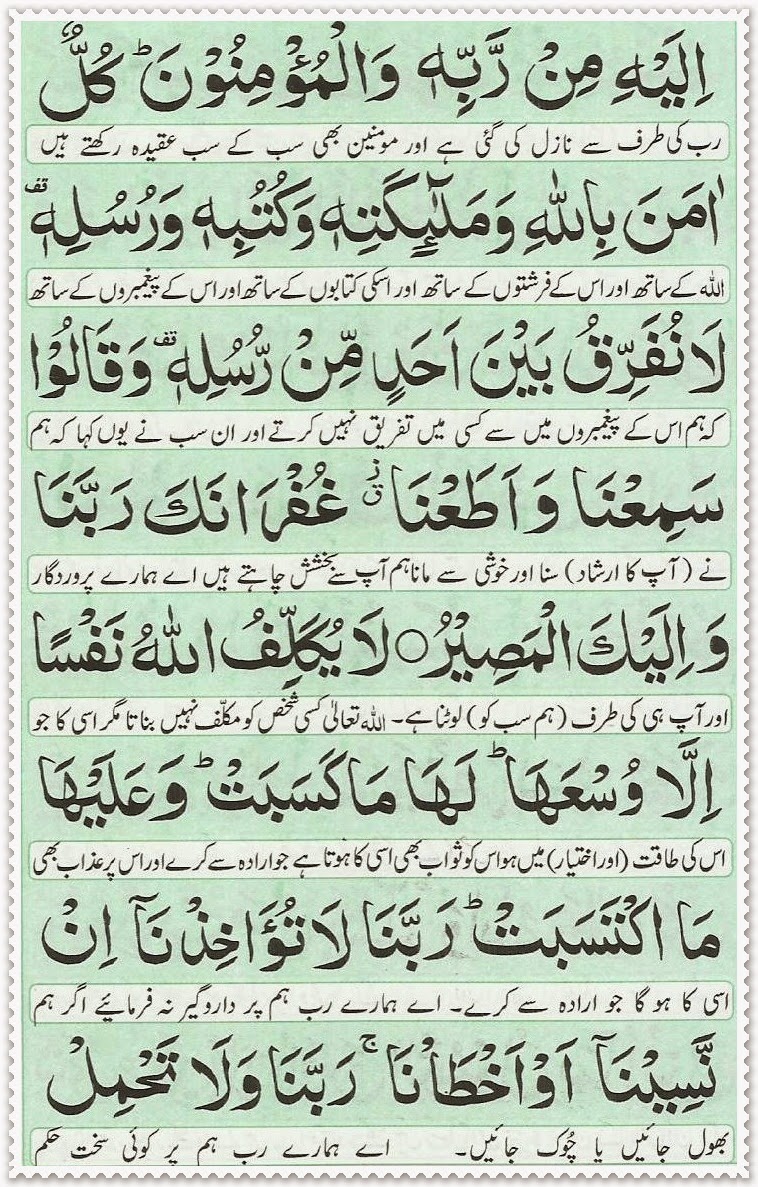 اِلَيْهِ مِنْ رَّبِّهٖ وَالْمُؤْمِنُوْنَ ؕ كُلٌّ
رب کی طرف سے نازل کی گئی ہے اور مومنین بھی سب کے سب عقیدہ رکھتے ہیں
اٰمَنَ بِاللّٰهِ وَمَلٰٓئِكَتِهٖ وَكُتُبِهٖ وَرُسُلِهٖ قف
اللہ کے ساتھ اور اس کے فرشتوں کے ساتھ اور اسکی کتابوں کے ساتھ اور اس کے پیغمبروں کے ساتھ
لَا نُفَرِّقُ بَيْنَ اَحَدٍ مِّنْ رُّسُلِهٖ قف وَقَالُوْا
کہ ہم اس کے پیغمبروں میں سے کسی میں تفریق نہیں کرتے اور ان سب نے یوں کہا کہ ہم
سَمِعْنَا وَاَطَعْنَا ز ق غُفْرَانَكَ رَبَّنَا
نے (آپ کا ارشاد) سنا اور خوشی سے مانا ہم آپ سے بخشش چاہتے ہیں اے ہمارے پروردگار
وَاِلَيْكَ الْمَصِيْرُ ○ لَا يُكَلِّفُ اللّٰهُ نَفْسًا
اور آپ ہی کی طرف (ہم سب کو) لوٹنا ہے۔ اللہ تعالیٰ کسی شخص کو مکلّف نہیں بناتا مگر اسی کا جو
اِلَّا وُسْعَهَا ؕ لَهَا مَا كَسَبَتْ ؕ وَعَلَيْهَا
اس کی طاقت (اور اختیار) میں ہو اس کو ثواب بھی اسی کا ہوتا ہے جو ارادہ سے کرے اور اس پر عذاب بھی
مَا اكْتَسَبَتْ ؕ رَبَّنَا لَا تُؤَاخِذْنَآ اِنْ
اسی کا ہو گا جو ارادہ سے کرے۔ اے ہمارے رب ہم پر داروگیر نہ فرمائیے اگر ہم
نَّسِيْنَآ اَوْ اَخْطَاْنَا ۚ رَبَّنَا وَلَا تَحْمِلْ
بھول جائیں یا چُوک جائیں۔ اے ہمارے رب ہم پر کوئی سخت حکم